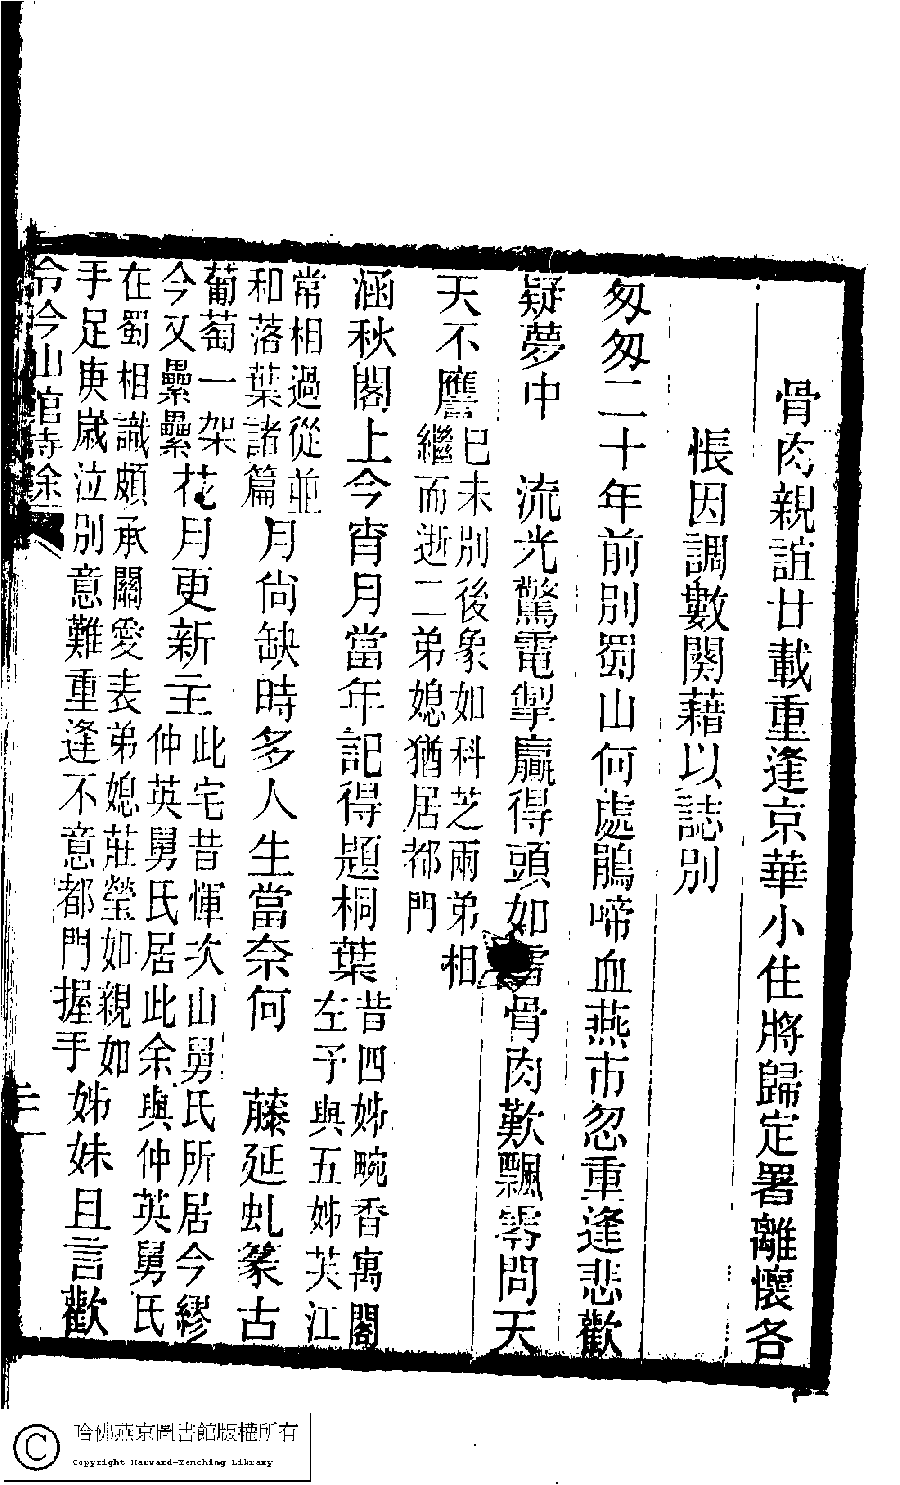 骨肉親誼廿載重逢京華小住將歸定署離懷各
悵因調數闋藉以誌別
匆匆二十年前別蜀山何處鵑啼血燕市忽重逢悲歡
疑夢中　流光驚電掣贏得頭如雪骨肉歎飄零問天
天不譍
己未別後象如科芝兩弟相
繼而逝二弟媳猶居都門
涵秋閣上今宵月當年記得題桐葉
昔四姊畹香寓閣
左予與五姊芙江
常相過從並
和落葉諸篇
月尙缺時多人生當奈何　藤延虬篆古
葡萄一架
今又纍纍
花月更新主
此宅昔惲次山舅氏所居今繆
仲英舅氏居此余與仲英舅氏
在蜀相識頗承關愛表弟媳莊瑩如親如
手足庚歲泣別意難重逢不意都門握手
姊妹且言歡
冷吟山館詩余
哈佛燕京圖書館版權所有
Copyright Harvard-Yenching Library